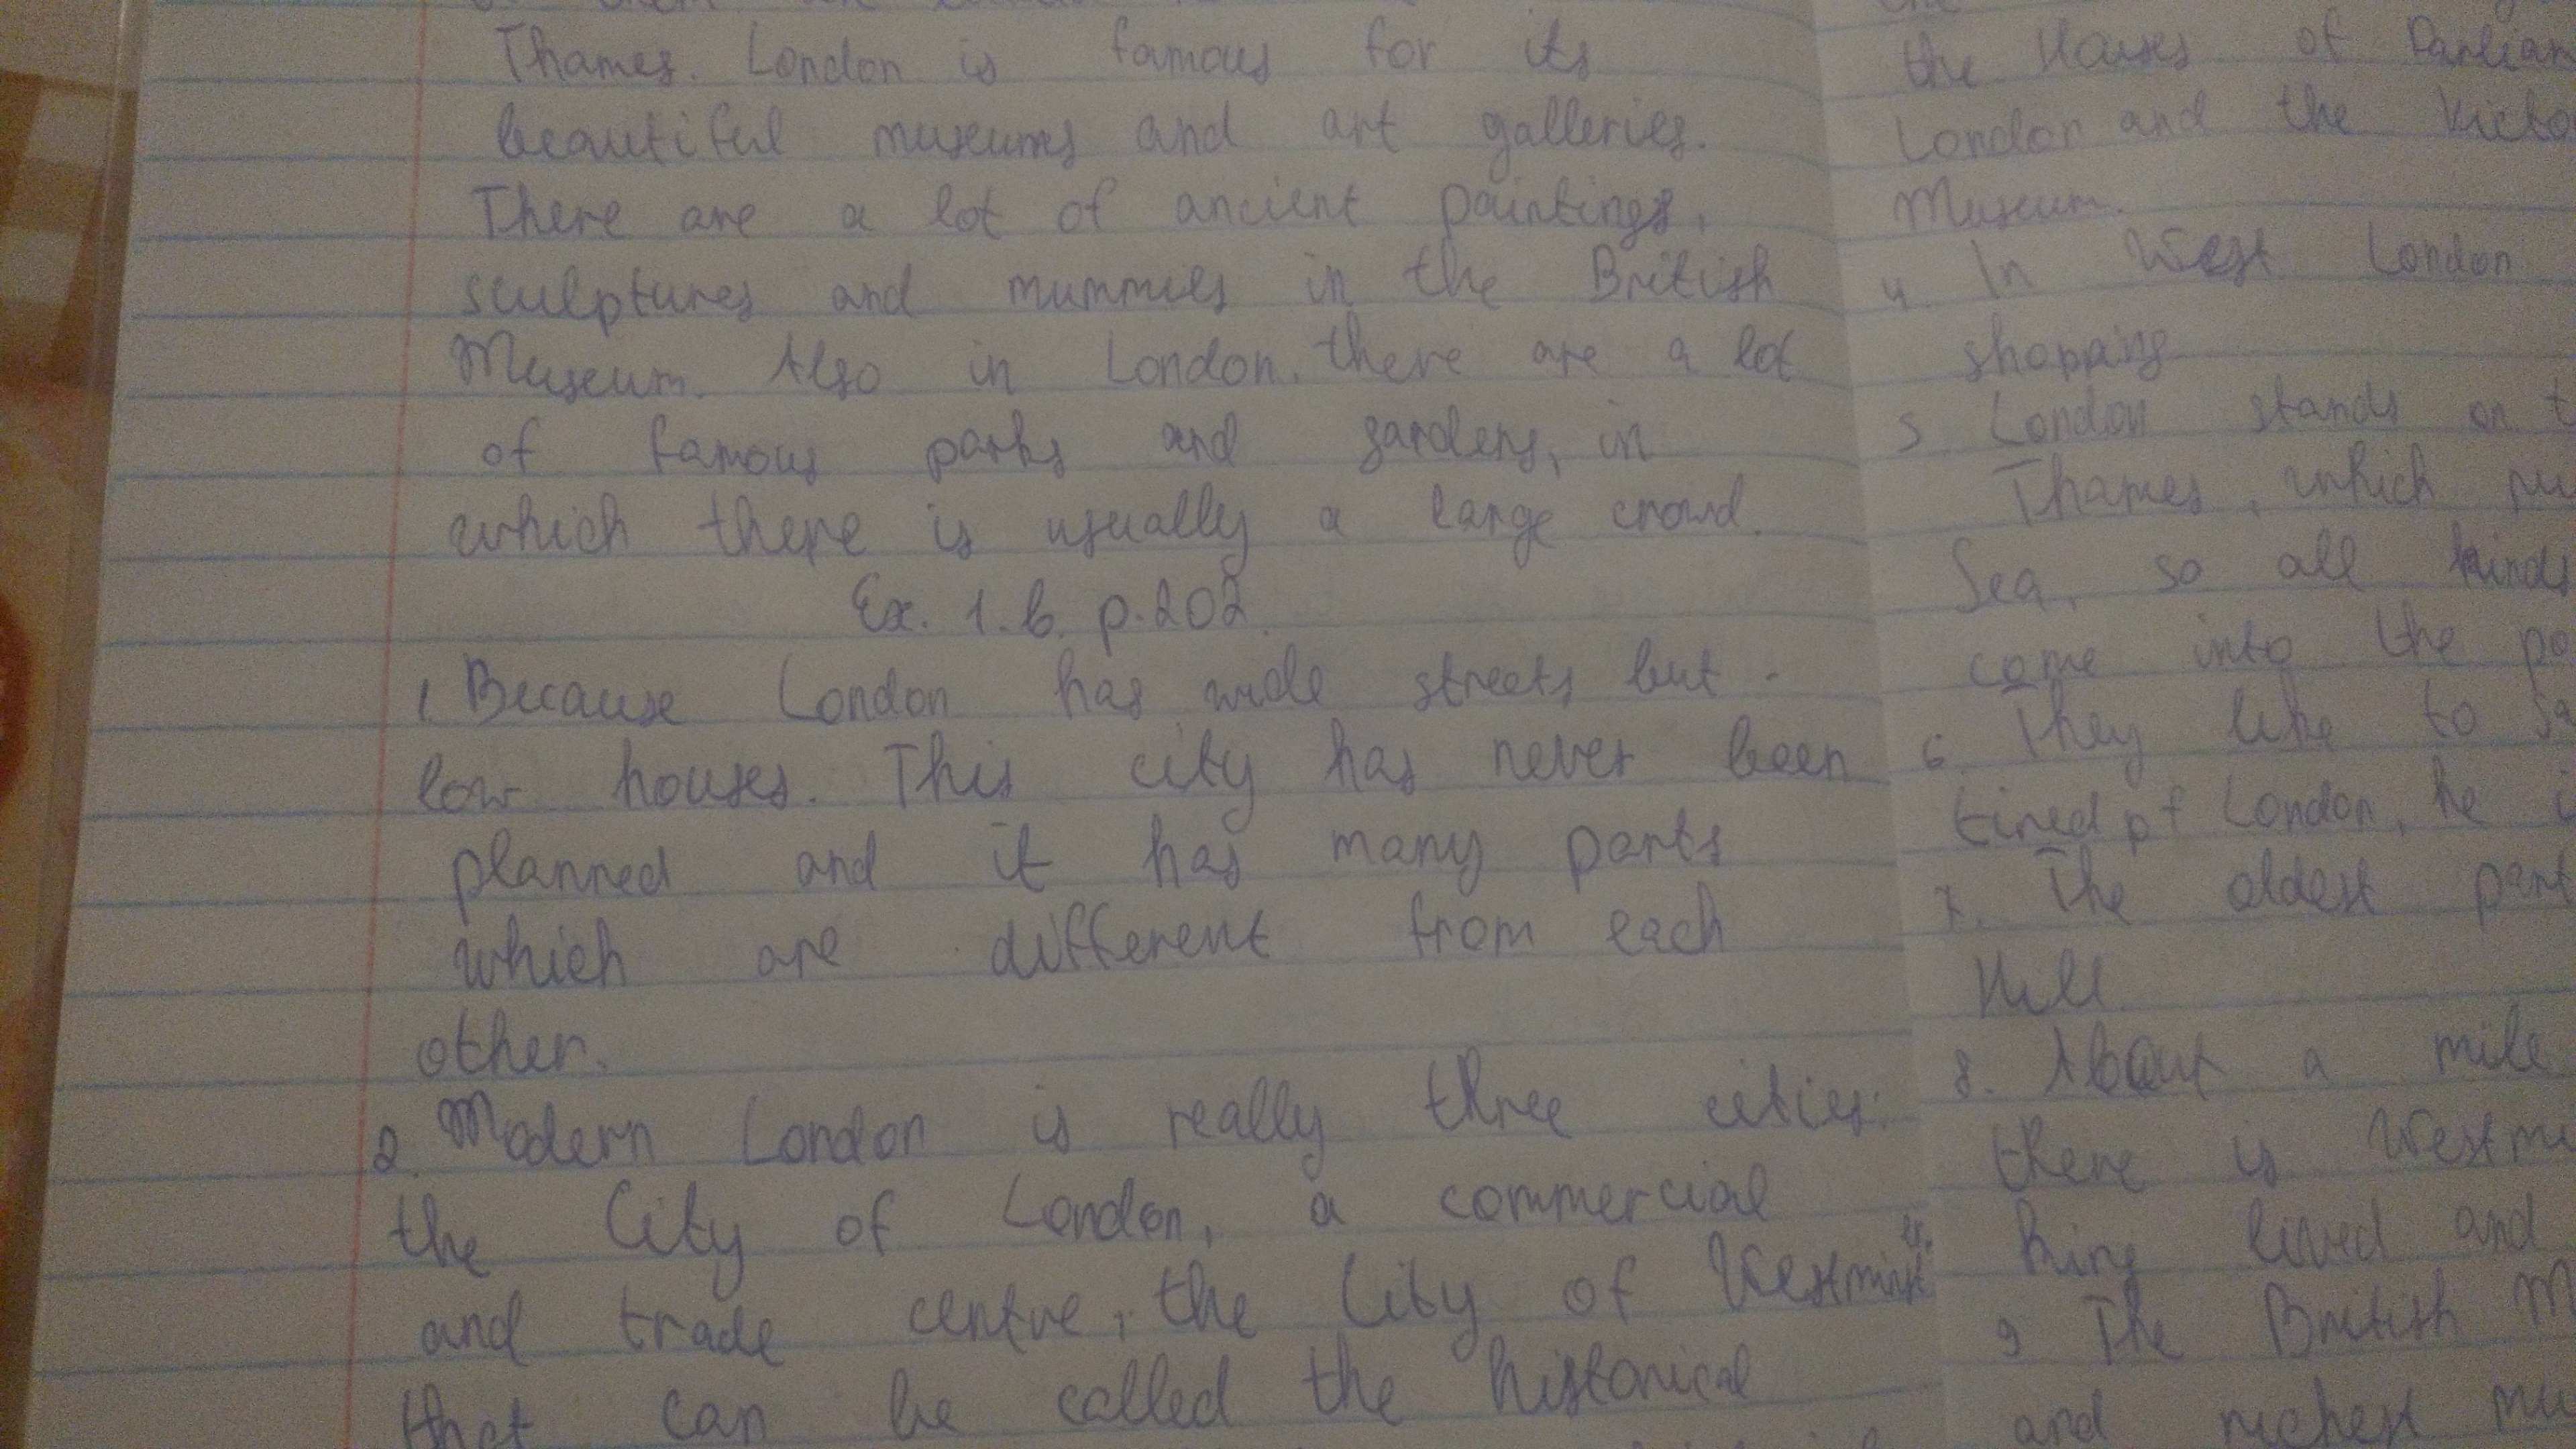 Thames. London is famous for its
beautiful museums and art galleries.
There are a lot of ancient paintings,
sculptures and mummies in the British
Museum. Also in London, there are a lot
of famous parks and gardens, in
which there is usually a large crowd.
Ex. 1.b. p.202.
1. Because London has wide streets but
low houses. This city has never been
planned and it has many parts
which are different from each
other.
2. Modern London is really three cities:
the City of London, a commercial
and trade centre, the City of Westminster
that can be called the historical
the Houses of
London and the
Museum.
4. In West London
shopping
5. London stands on
Thames, which
Sea, so all kinds
come into the
6. They like to
tired of London, he
7. The oldest part
Hill
8. About a mile
there is
king lived and
9 The British
and richest